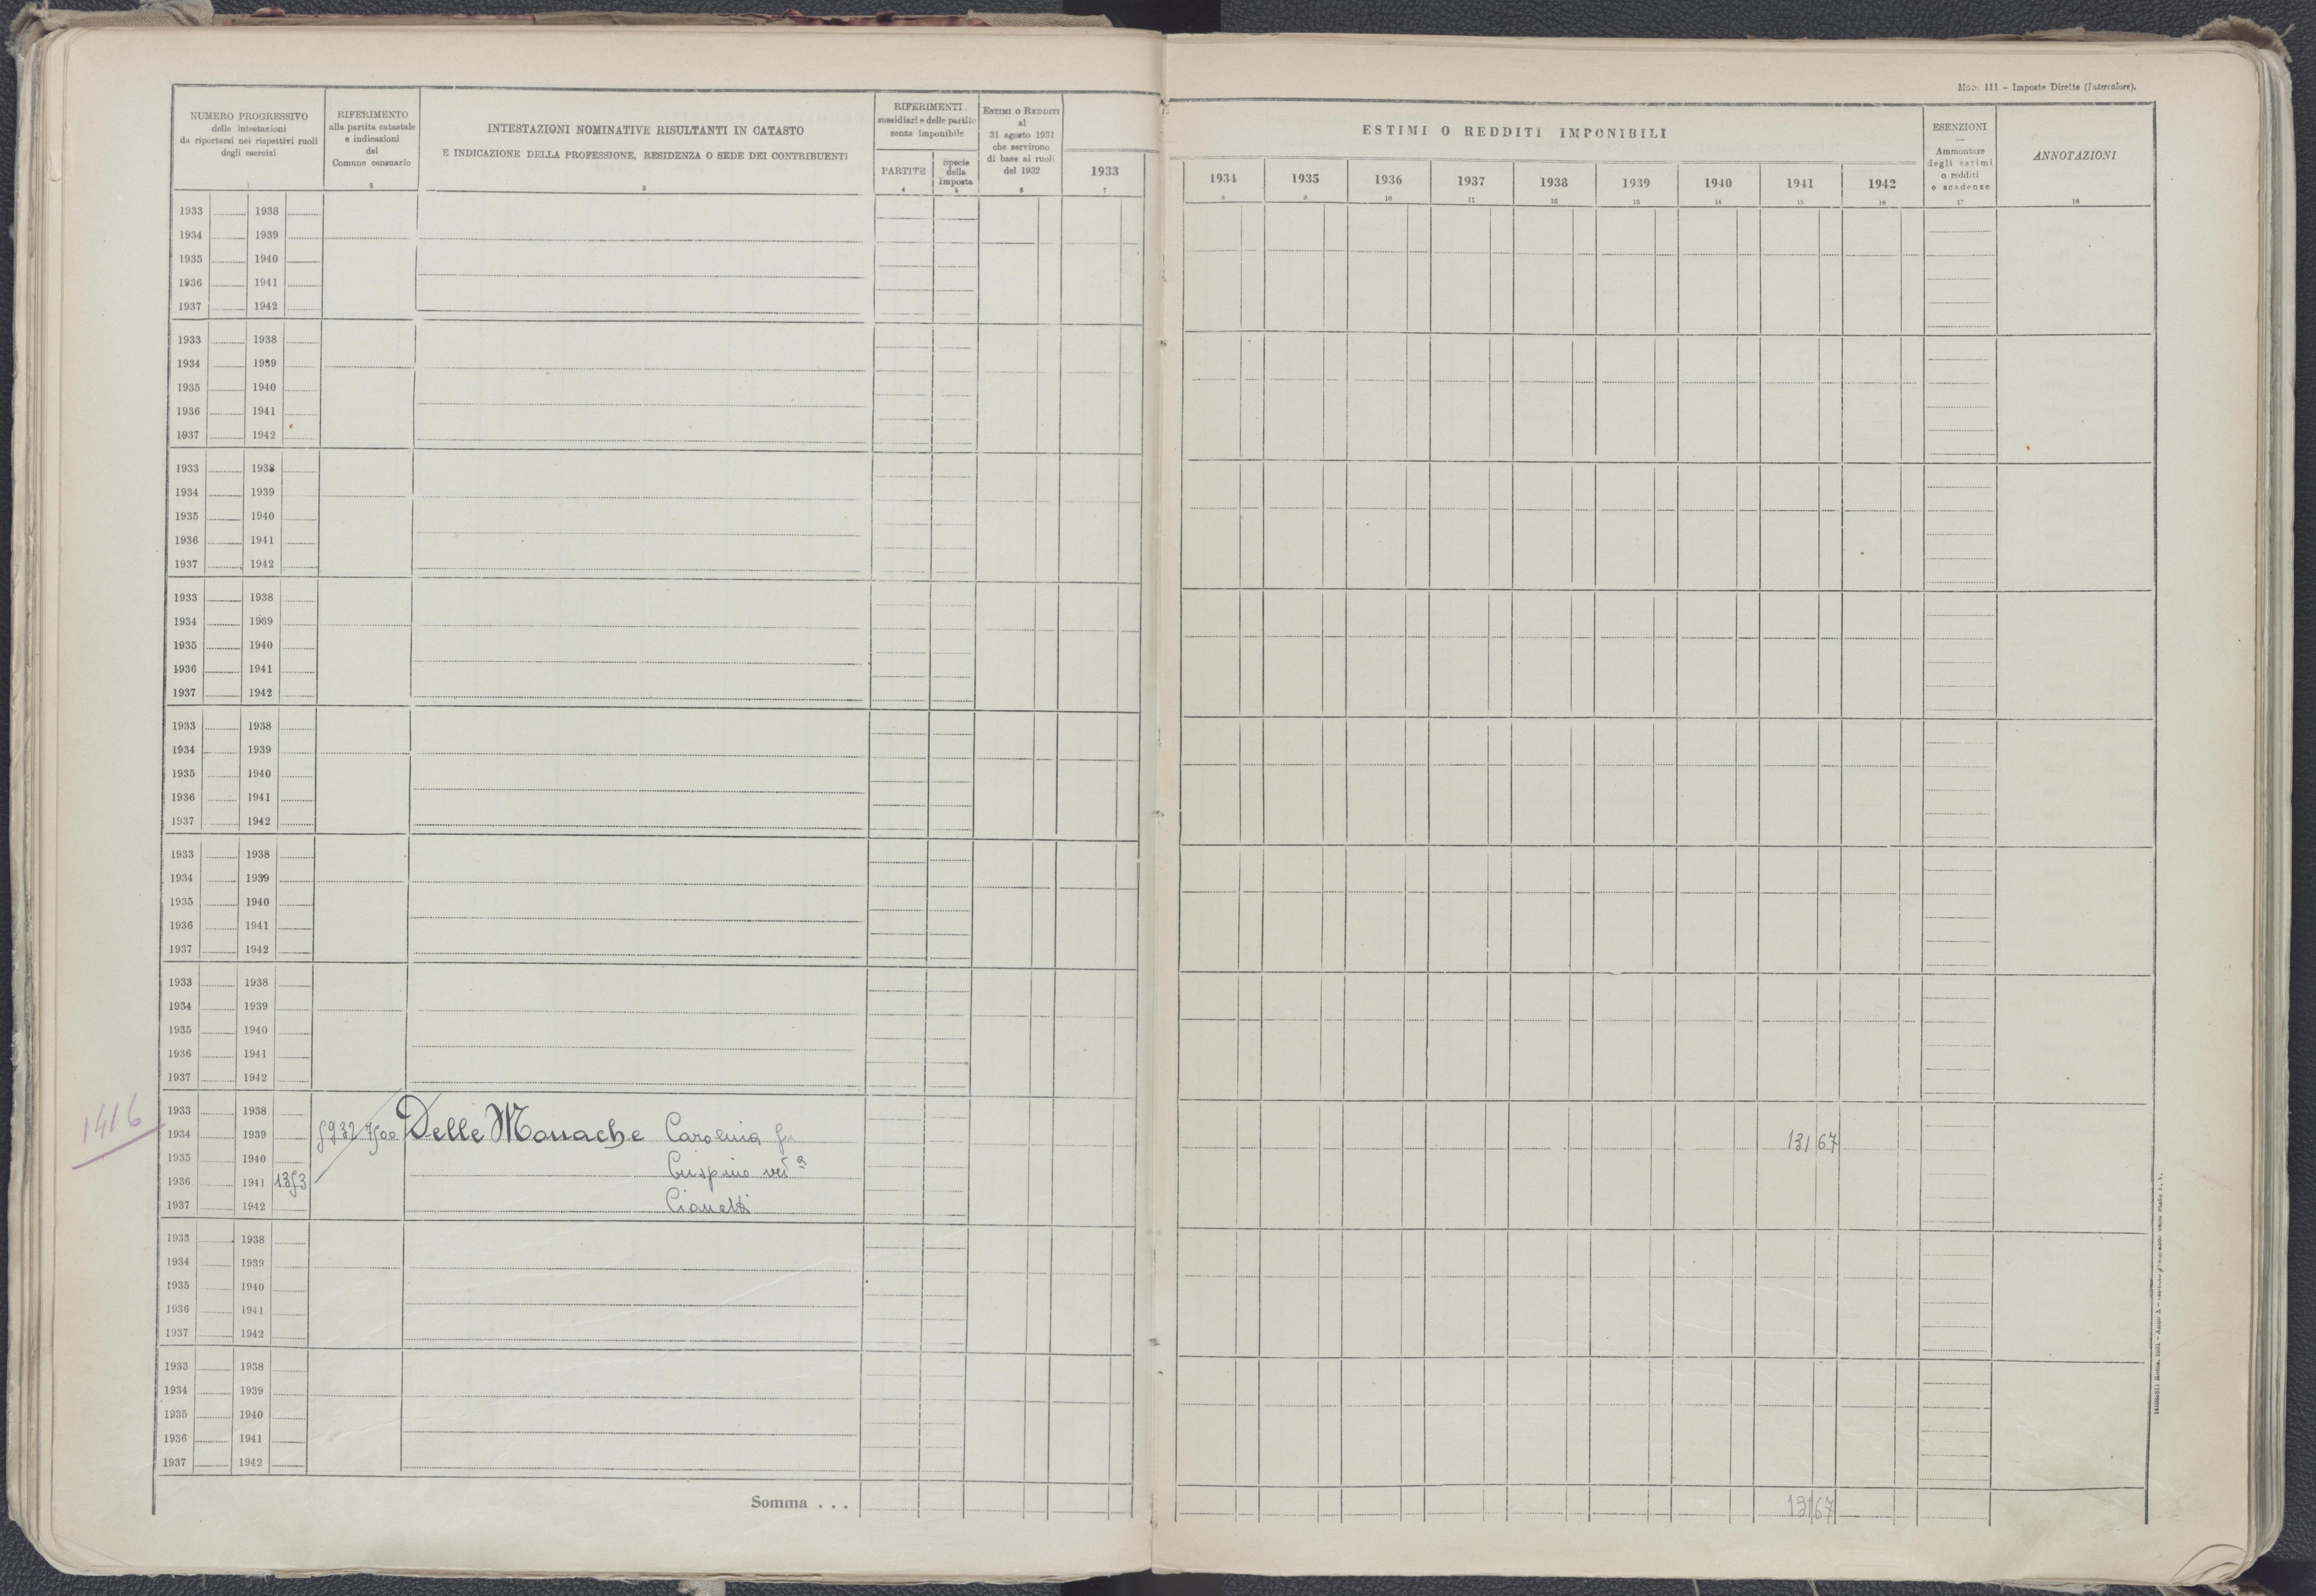 Mod. 111 - Imposte Dirette (Intercalare).
NUMERO PROGRESSIVO
delle intestazioni
da riportarsi nei rispettivi ruoli
degli esercizi
1
RIFERIMENTO
alla partita catastale
e indicazioni
del
Comune censuario
2
INTESTAZIONI NOMINATIVE RISULTANTI IN CATASTO
E INDICAZIONE DELLA PROFESSIONE, RESIDENZA O SEDE DEI CONTRIBUENTI
3
RIFERIMENTI
sussidiari e delle partite
senza imponibile
PARTITE
4
Specie
della
Imposta
5
ESTIMI O REDDITI
al
31 agosto 1931
che servirono
di base ai ruoli
del 1932
6
1933
7
ESTIMI O REDDITI IMPONIBILI
1934 1935 1936 1937 1938 1939 1940 1941 1942
8 9 10 11 12 13 14 15 16
ESENZIONI
—
Ammontare
degli estimi
o redditi
e scadenze
17
ANNOTAZIONI
18
1933 1938
1934 1939
1935 1940
1936 1941
1937 1942
1933 1938
1934 1939
1935 1940
1936 1941
1937 1942
1933 1938
1934 1939
1935 1940
1936 1941
1937 1942
1933 1938
1934 1969
1935 1940
1936 1941
1937 1942
1933 1938
1934 1939
1935 1940
1936 1941
1937 1942
1933 1938
1934 1939
1935 1940
1936 1941
1937 1942
1933 1938
1934 1939
1935 1940
1936 1941
1937 1942
1416
1933 1938
1934 1939 5932 7500 Delle Monache Carolina fu 131 67
1935 1940 Crispino ved.a
1936 1941 1353
1937 1942 Cianetti
1933 1938
1934 1939
1935 1940
1936 1941
1937 1942
1933 1938
1934 1939
1935 1940
1936 1941
1937 1942
Somma . . . 131 67